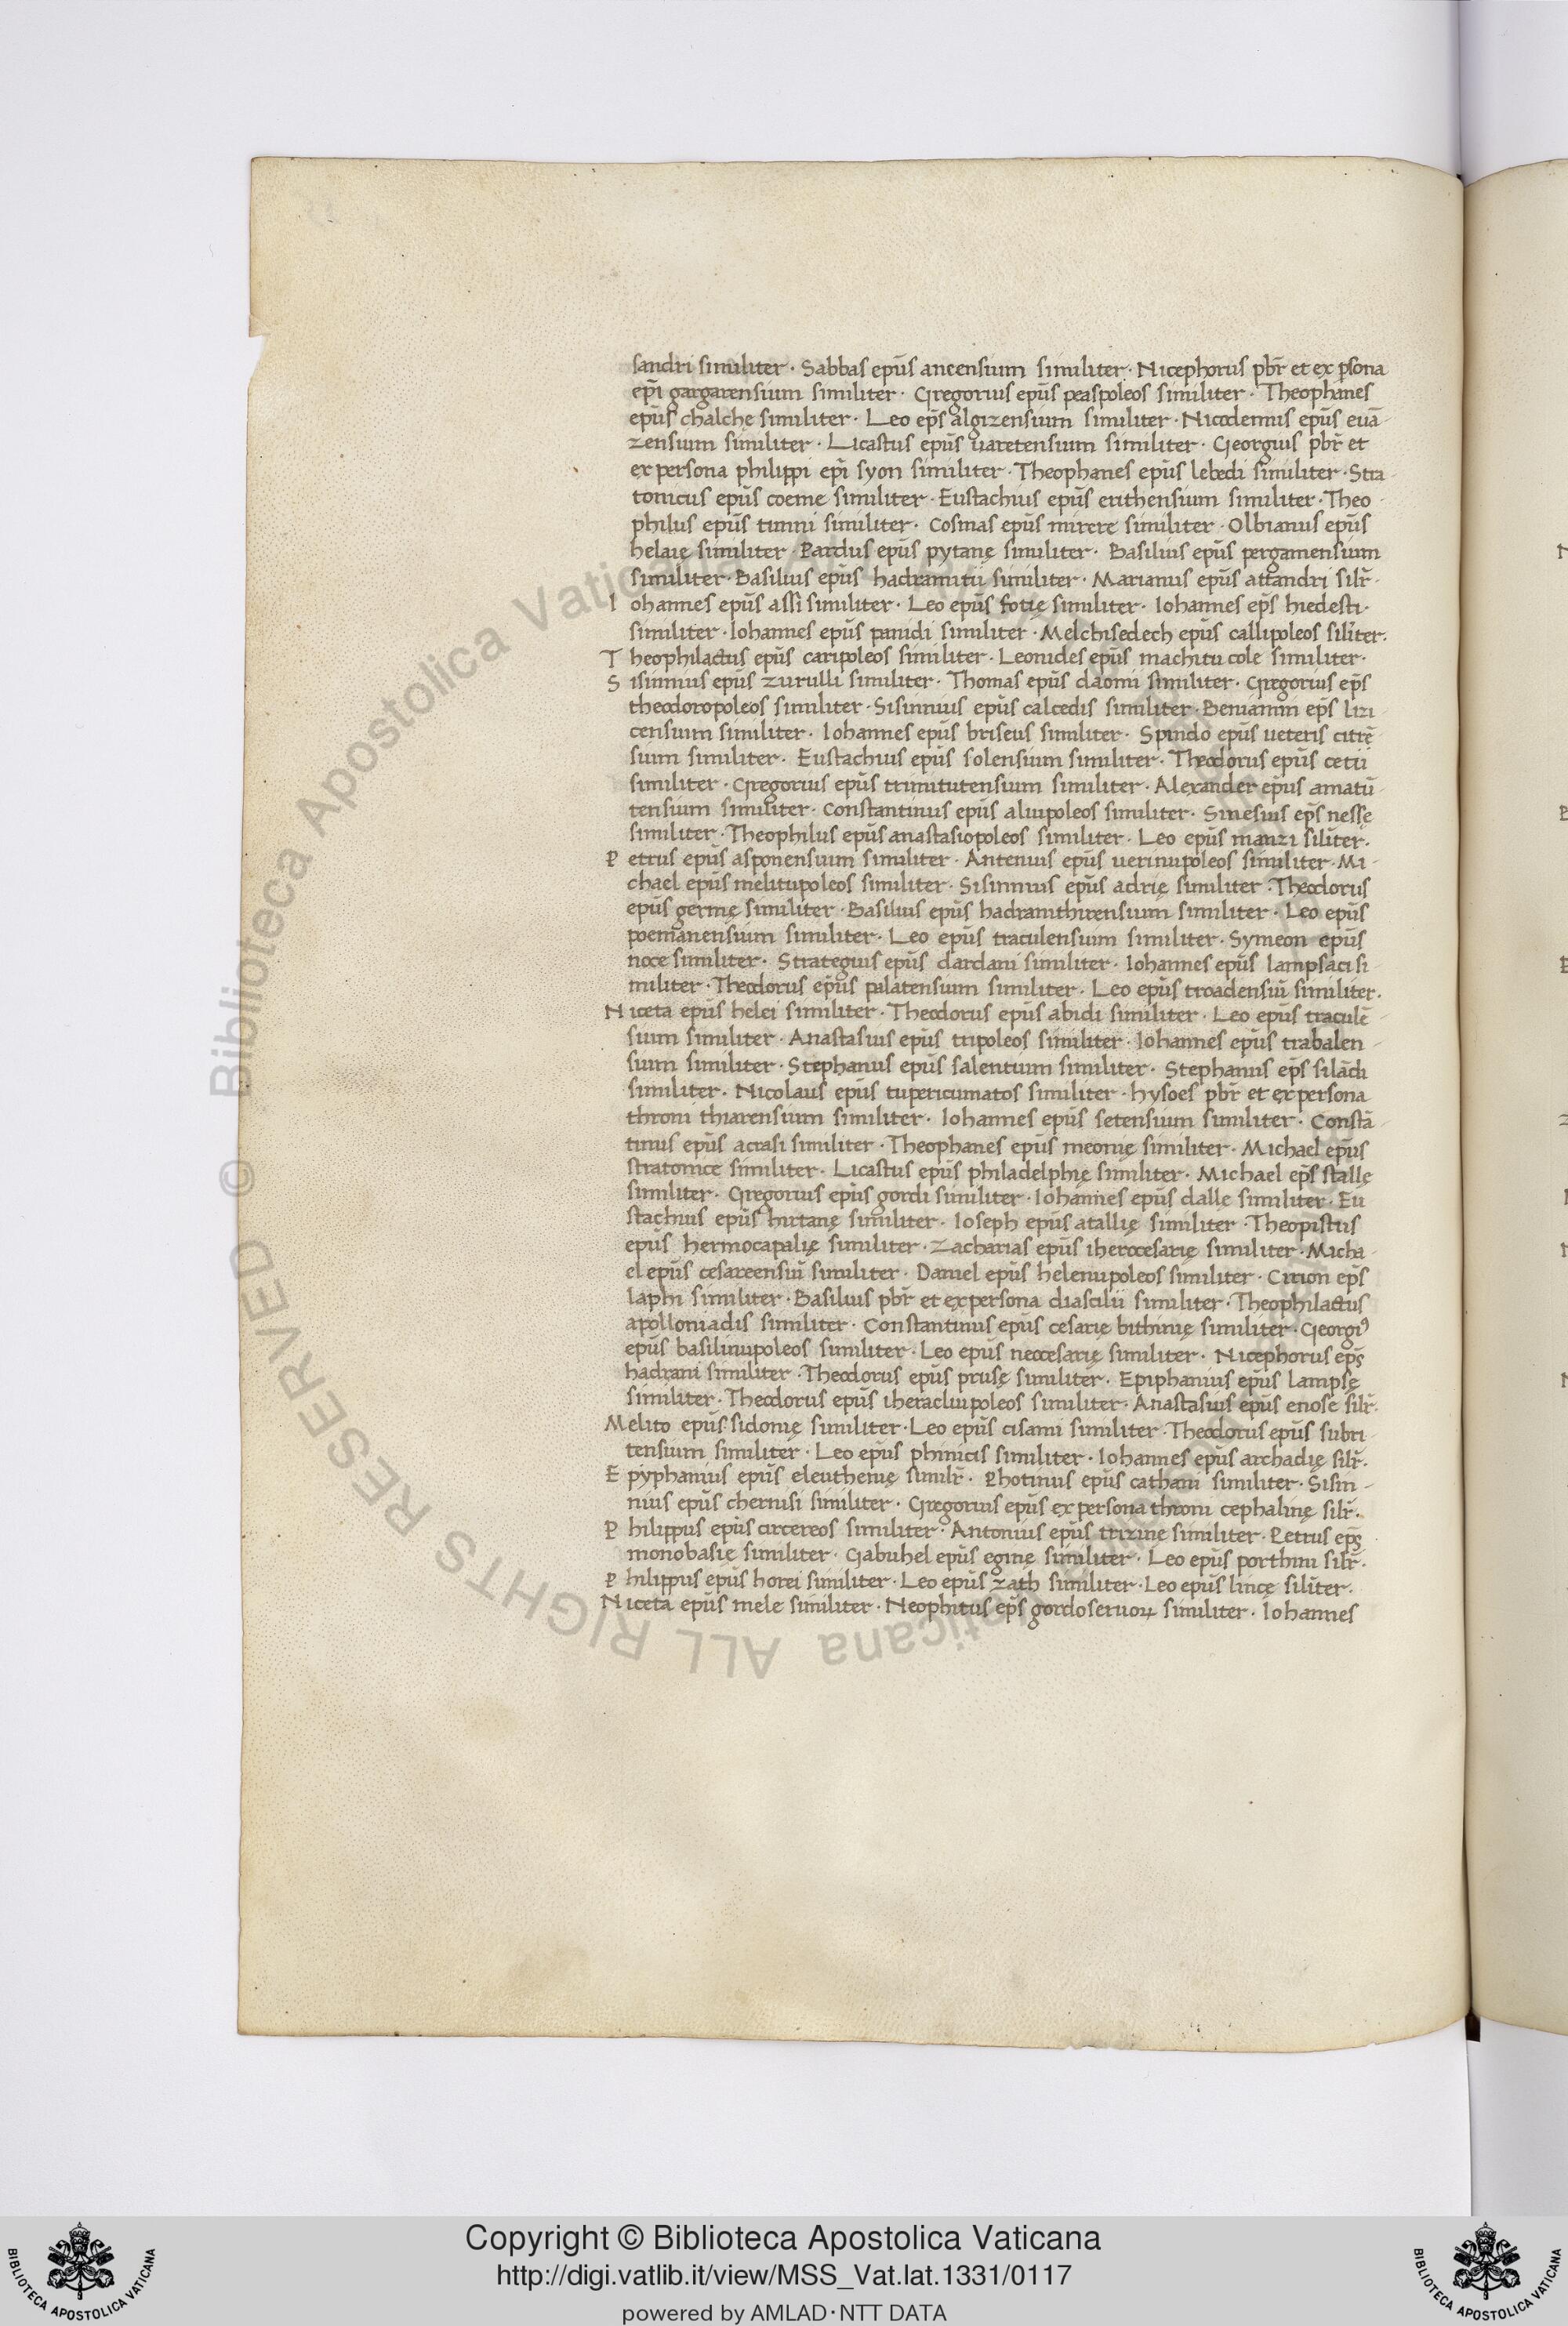 sandri similiter · Sabbas epūs ancensium similiter · Nicephorus pbr̄ et ex psona
epī gargarensium similiter · Gregorius epūs peaspoleos similiter · Theophanes
epūs chalchę similiter · Leo ep̄s algizensium similiter · Nicodemus epūs euā
zensium similiter · Licastus epūs uaretensium similiter · Georgius pbr̄ et
ex persona philippi epī syon similiter · Theophanes epūs lebedi similiter · Stra
tonicus epūs coeme similiter · Eustachius epūs erithensium similiter · Theo
philus epūs timni similiter · Cosmas epūs mirere similiter · Olbianus epūs
helaię similiter · Pardus epūs pytanę similiter · Basilius epūs pergamensium
similiter · Basilius epūs hadramitii similiter · Marianus epūs attandri silr̄ ·
Iohannes epūs assi similiter · Leo epūs fotię similiter · Iohannes ep̄s hiedesti ·
similiter · Iohannes epūs panidi similiter · Melchisedech epūs callipoleos siliter.
Theophilactus epūs caripoleos similiter · Leonides epūs machitu cole similiter ·
Sisinnius epūs zurulli similiter · Thomas epūs daomi similiter · Gregorius ep̄s
theodoropoleos similiter · Sisinnius epūs calcedis similiter · Beniamin ep̄s lizi
censium similiter · Iohannes epūs briseus similiter · Spirido epūs ueteris citrē
sium similiter · Eustachius epūs solensium similiter · Theodorus epūs cetii
similiter · Gregorius epūs trimitutensium similiter · Alexander epūs amatū
tensium similiter · Constantinus epūs aluipoleos similiter · Sinesius ep̄s nesse
similiter · Theophilus epūs anastasiopoleos similiter · Leo epūs manzi siliter.
Petrus epūs asponensium similiter · Antenius epūs uerinupoleos similiter · Mi
chael epūs melitupoleos similiter · Sisinnius epūs adrię similiter · Theodorus
epūs germę similiter · Basilius epūs hadramthirensium similiter · Leo epūs
poemanensium similiter · Leo epūs traculensium similiter · Symeon epūs
noce similiter · Strategius epūs dardani similiter · Iohannes epūs lampsaci si
militer · Theodorus epūs palatensium similiter · Leo epūs troadensiū similiter.
Niceta epūs helei similiter · Theodorus epūs abidi similiter · Leo epūs traculē
sium similiter · Anastasius epūs tripoleos similiter · Iohannes epūs trabalen
sium similiter · Stephanus epūs salentium similiter · Stephanus ep̄s silādi
similiter · Nicolaus epūs tupericumatos similiter · hysoes pbr̄ et ex persona
throni thiarensium similiter · Iohannes epūs setensium similiter · Constā
tinus epūs acrasi similiter · Theophanes epūs meonię similiter · Michael epūs
stratonice similiter · Licastus epūs philadelphię similiter · Michael ep̄s stallę
similiter · Gregorius epūs gordi similiter · Iohannes epūs dalle similiter · Eu
stachius epūs hirtanę similiter · Ioseph epūs atallię similiter · Theopistus
epūs hermocapalię similiter · Zacharias epūs iherocesarię similiter · Micha
el epūs cesareensiū similiter · Daniel epūs helenupoleos similiter · Cirion ep̄s
laphi similiter · Basilius pbr̄ et ex persona diascilii similiter · Theophilactus
apolloniadis similiter · Constantinus epūs cesarię bithinię similiter · Georgi⁹
epūs basilinupoleos similiter · Leo epūs neocesarię similiter · Nicephorus ep̄s
hadrani similiter · Theodorus epūs prusę similiter · Epiphanius epūs lampsę
similiter · Theodorus epūs iheracliupoleos similiter · Anastasius epūs enose silr̄ ·
Melito epūs sidonię similiter · Leo epūs cisami similiter · Theodorus epūs subri
tensium similiter · Leo epūs phinicis similiter · Iohannes epūs archadię silr̄ ·
Epyphanius epūs eleuthenię similr̄ · Photinus epūs cathani similiter · Sisin
nius epūs chernisi similiter · Gregorius epūs ex persona throni cephalinę silr̄ ·
Philippus epūs circereos similiter · Antonius epūs trizine similiter · Petrus ep̄s
monobasię similiter · Gabrihel epūs eginę similiter · Leo epūs porthmi silr̄ ·
Philippus epūs horei similiter · Leo epūs zath similiter · Leo epūs lince siliter.
Niceta epūs mele similiter · Neophitus ep̄s gordoseruoꝝ similiter · Iohannes
© Biblioteca Apostolica Vaticana ALL RIGHTS RESERVED
Copyright © Biblioteca Apostolica Vaticana
http://digi.vatlib.it/view/MSS_Vat.lat.1331/0117
powered by AMLAD·NTT DATA
BIBLIOTECA APOSTOLICA VATICANA
BIBLIOTECA APOSTOLICA VATICANA